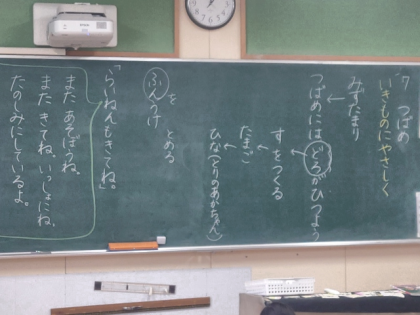 7 つばめ
いきものにやさしく
みずたまり
つばめにはどろがひつよう
すをつくる
たまご
ひな(とりのあかちゃん)
ふんをとめる
「らいねんもきてね。」
またあそぼうね、
またきてね、いっしょにね、
たのしみにしているよ。
EPSON